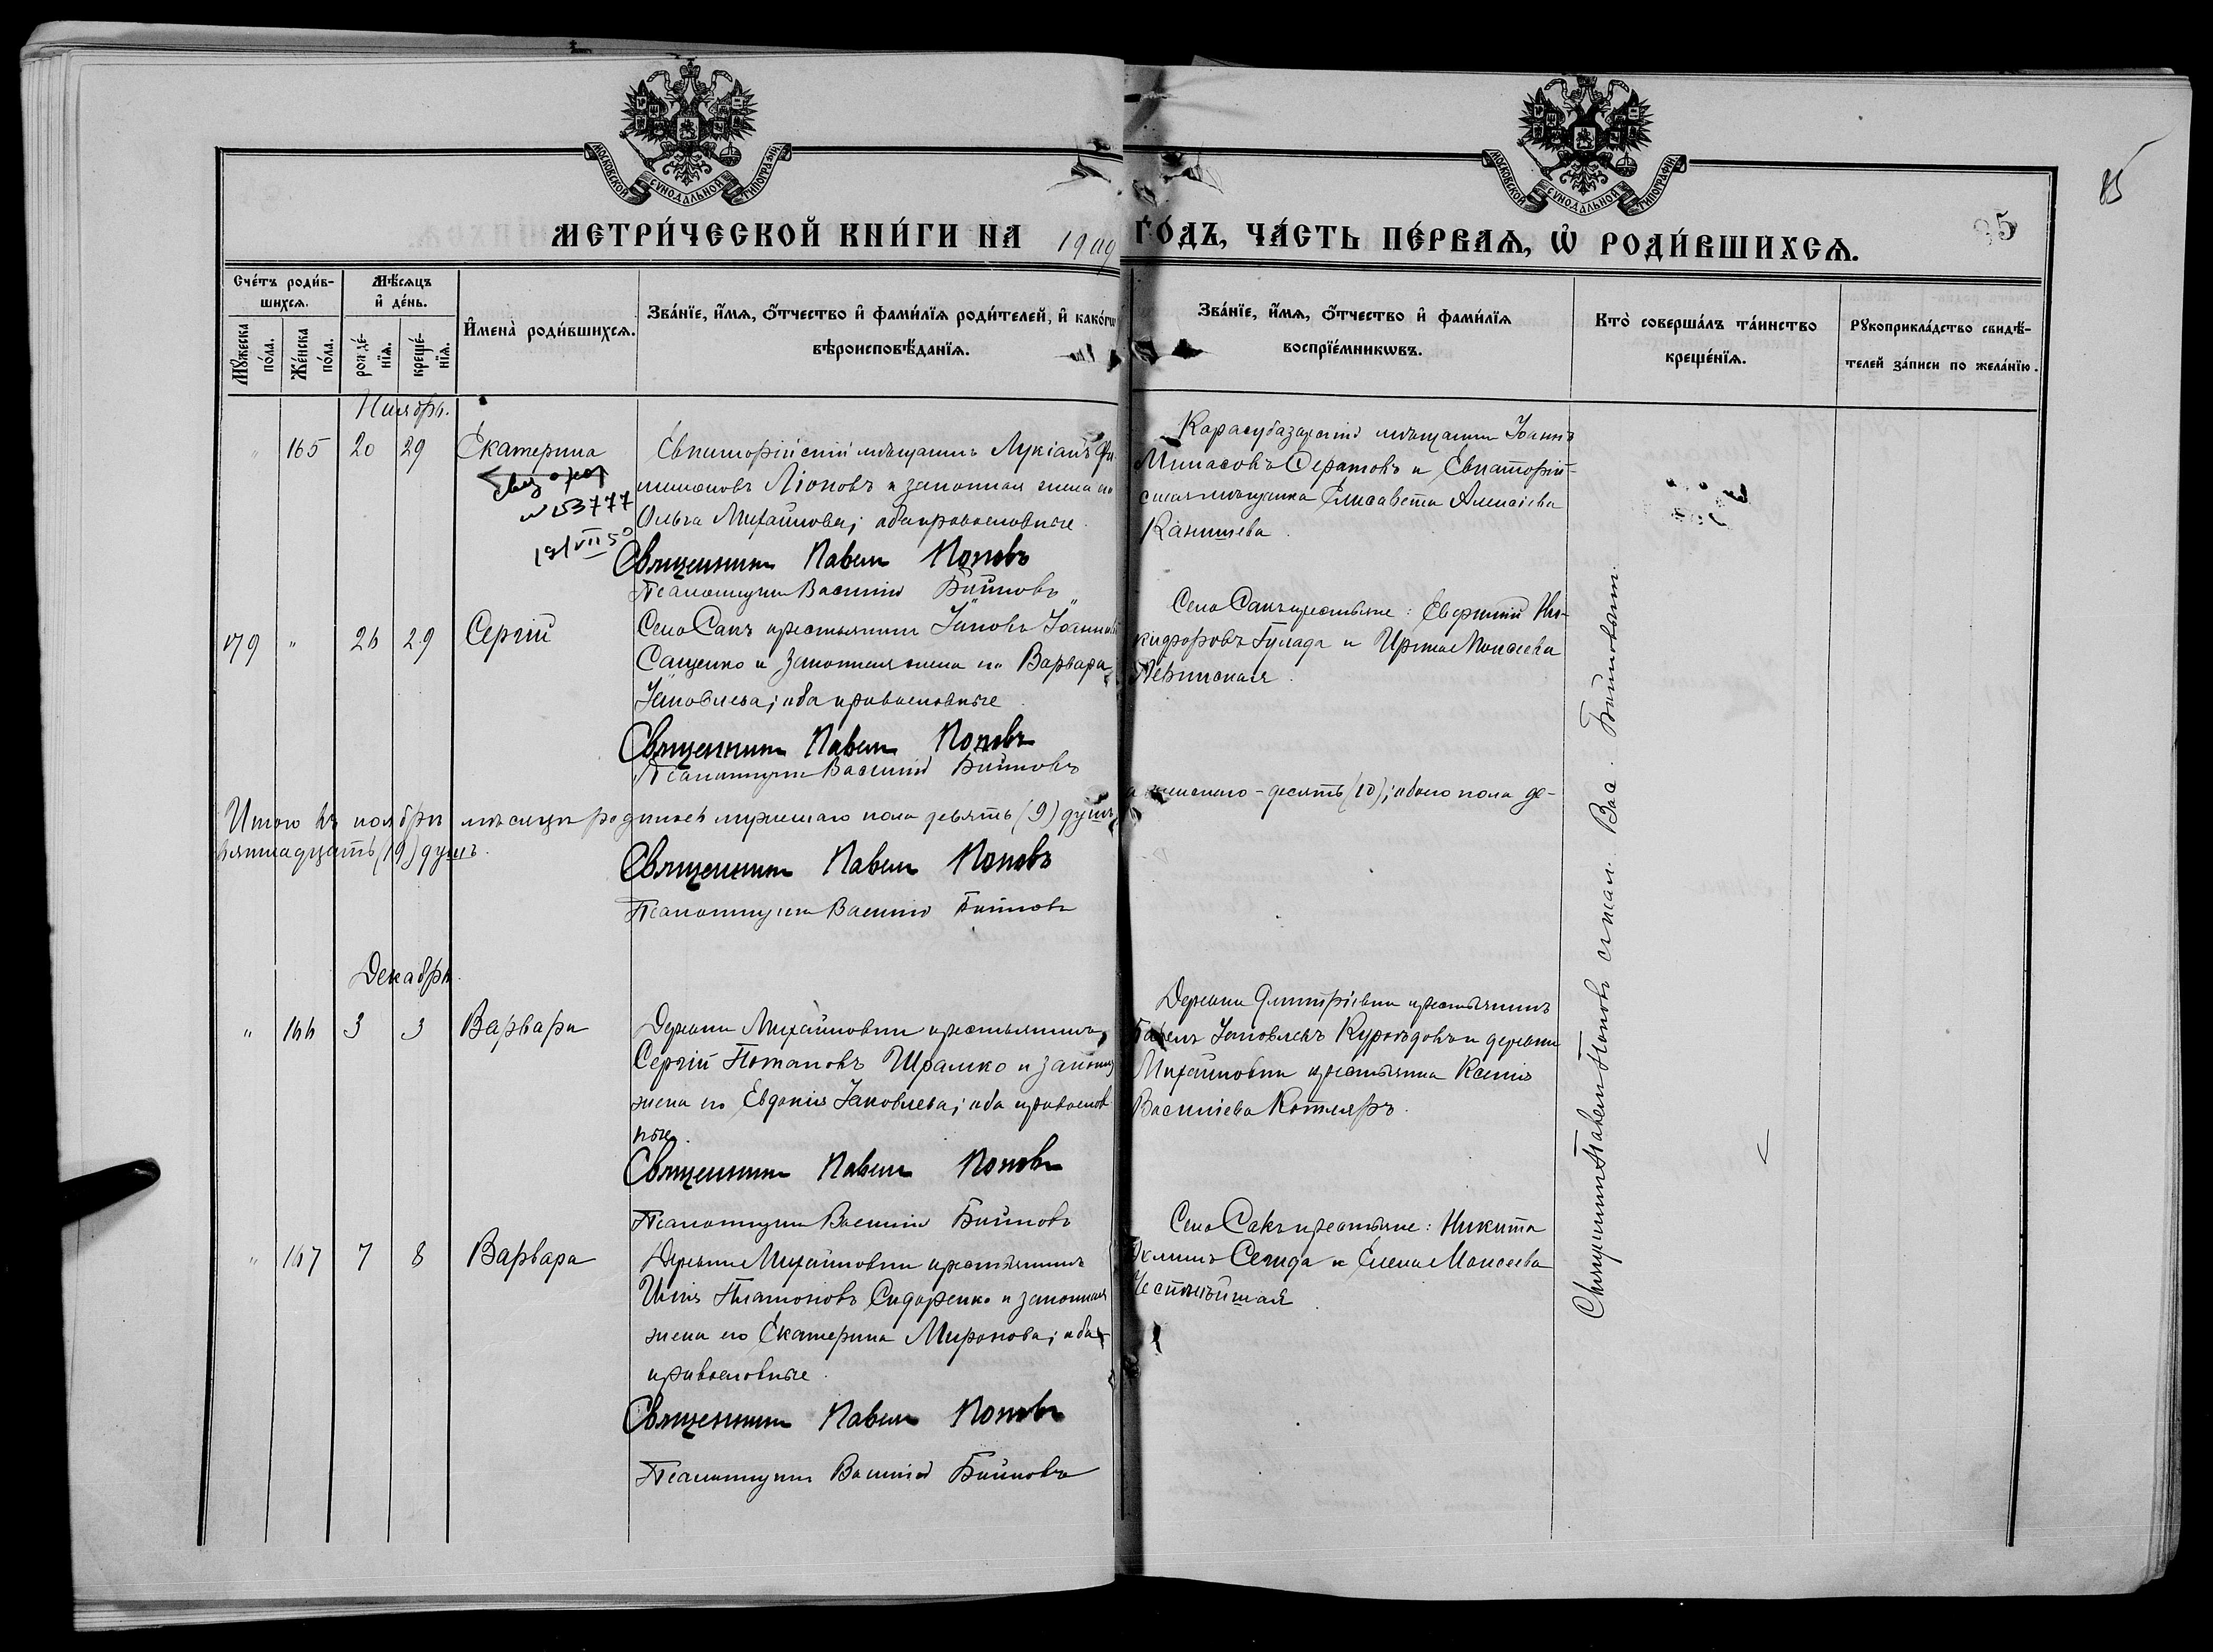 МОСКОВСКОЙ СУНОДАЛЬНОЙ ТИПОГРАФІИ
МОСКОВСКОЙ СУНОДАЛЬНОЙ ТИПОГРАФІИ
85
35
МЕТРИ́ЧЕСКОЙ КНИ́ГИ НА 1909 ГО́ДЪ, ЧА́СТЬ ПЕ́РВАѦ, Ѡ҆ РОДИ́ВШИХСѦ.
Сче́тъ роди́в-
шихсѧ.
Мꙋ́жеска
по́ла.
Же́нска
по́ла.
Мѣ́сѧцъ
и҆ де́нь.
рожде́-
нїѧ.
креще́-
нїѧ.
И҆мена̀ роди́вшихсѧ.
Зва́нїе, и҆́мѧ, ѻ҆́тчество и҆ фами́лїѧ роди́телей, и҆ како́гѡ
вѣроисповѣ́данїѧ.
Зва́нїе, и҆́мѧ, ѻ҆́тчество и҆ фами́лїѧ
воспрїе́мникѡвъ.
Кто̀ соверша́лъ та́инство
креще́нїѧ.
Рꙋкоприкла́дство свидѣ́-
телей за́писи по жела́нїю.
Ноябрь.
" 165 20 29 Екатерина
№ 53777
19/VII 50
Евпаторійскій мѣщанинъ Лукіанъ Фи-
лимоновъ Ліоновъ и законная жена его
Ольга Михайлова; оба православные.
Священникъ Павелъ Поповъ
Псаломщикъ Василій Бойковъ
Карасубазарскій мѣщанинъ Іоаннъ
Минасовъ Сератовъ и Евпаторій-
ская мѣщанка Елисавета Алексіева
Канишева.
179 " 26 29 Сергій
Села Сакъ крестьянинъ Іаковъ Іоанновъ
Сащенко и законная жена его Варвара
Іаковлева; оба православные.
Священникъ Павелъ Поповъ
Псаломщикъ Василій Бойковъ
Села Сакъ крестьяне: Евфимій Ни-
кифоровъ Гулада и Ирина Моисеева
Левинская.
Итого въ ноябрѣ мѣсяцѣ родилось мужескаго пола девять (9) душъ,
а женскаго - десять (10); обоего пола де-
вятнадцать (19) душъ.
Священникъ Павелъ Поповъ
Псаломщикъ Василій Бойковъ
Декабрь.
" 166 3 3 Варвара
Деревни Михайловки крестьянинъ
Сергій Потаповъ Шрамко и законная
жена его Евдокія Іаковлева; оба православ-
ные.
Священникъ Павелъ Поповъ
Псаломщикъ Василій Бойковъ
Деревни Дмитріевки крестьянинъ
Павелъ Іаковлевъ Куроѣдовъ и деревни
Михайловки крестьянка Ксенія
Василіева Котляръ.
" 167 7 8 Варвара
Деревни Михайловки крестьянинъ
Илія Платоновъ Сидоренко и законная
жена его Екатерина Миронова; оба
православные.
Священникъ Павелъ Поповъ
Псаломщикъ Василій Бойковъ
Села Сакъ крестьяне: Никита
Сегида и Елена Моисеева
Священникъ Павелъ Поповъ съ псал. Вас. Бойковымъ.